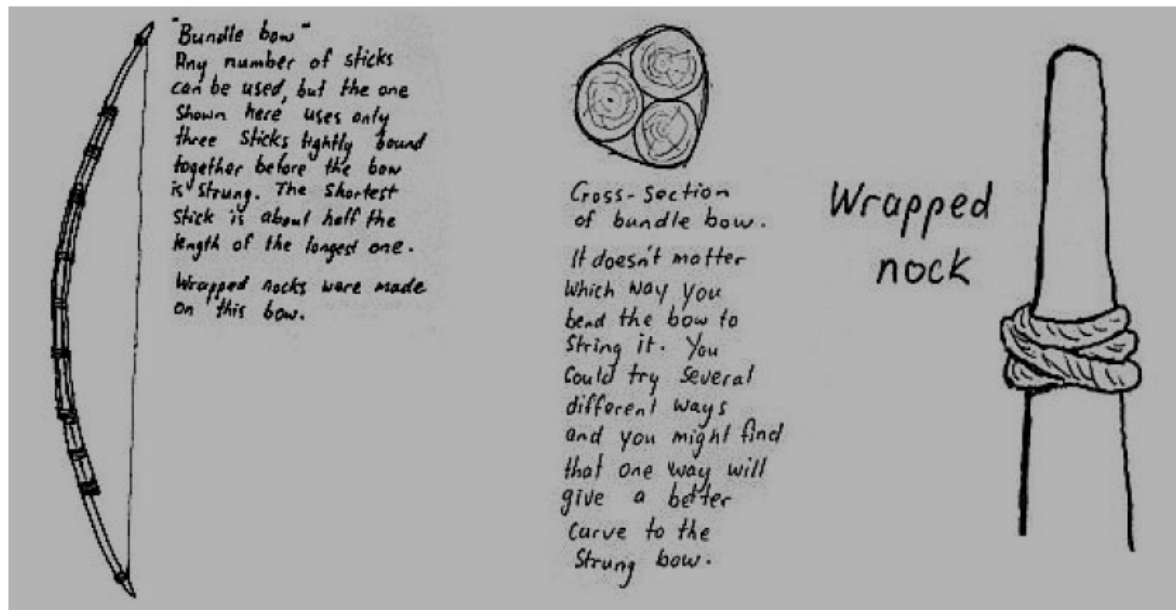 "Bundle bow"
Any number of sticks
can be used, but the one
shown here uses only
three sticks tightly bound
together before the bow
is strung. The shortest
stick is about half the
length of the longest one.
Wrapped nocks were made
on this bow.
Cross-section
of bundle bow.
It doesn't matter
which way you
bend the bow to
string it. You
could try several
different ways
and you might find
that one way will
give a better
curve to the
strung bow.
Wrapped
nock